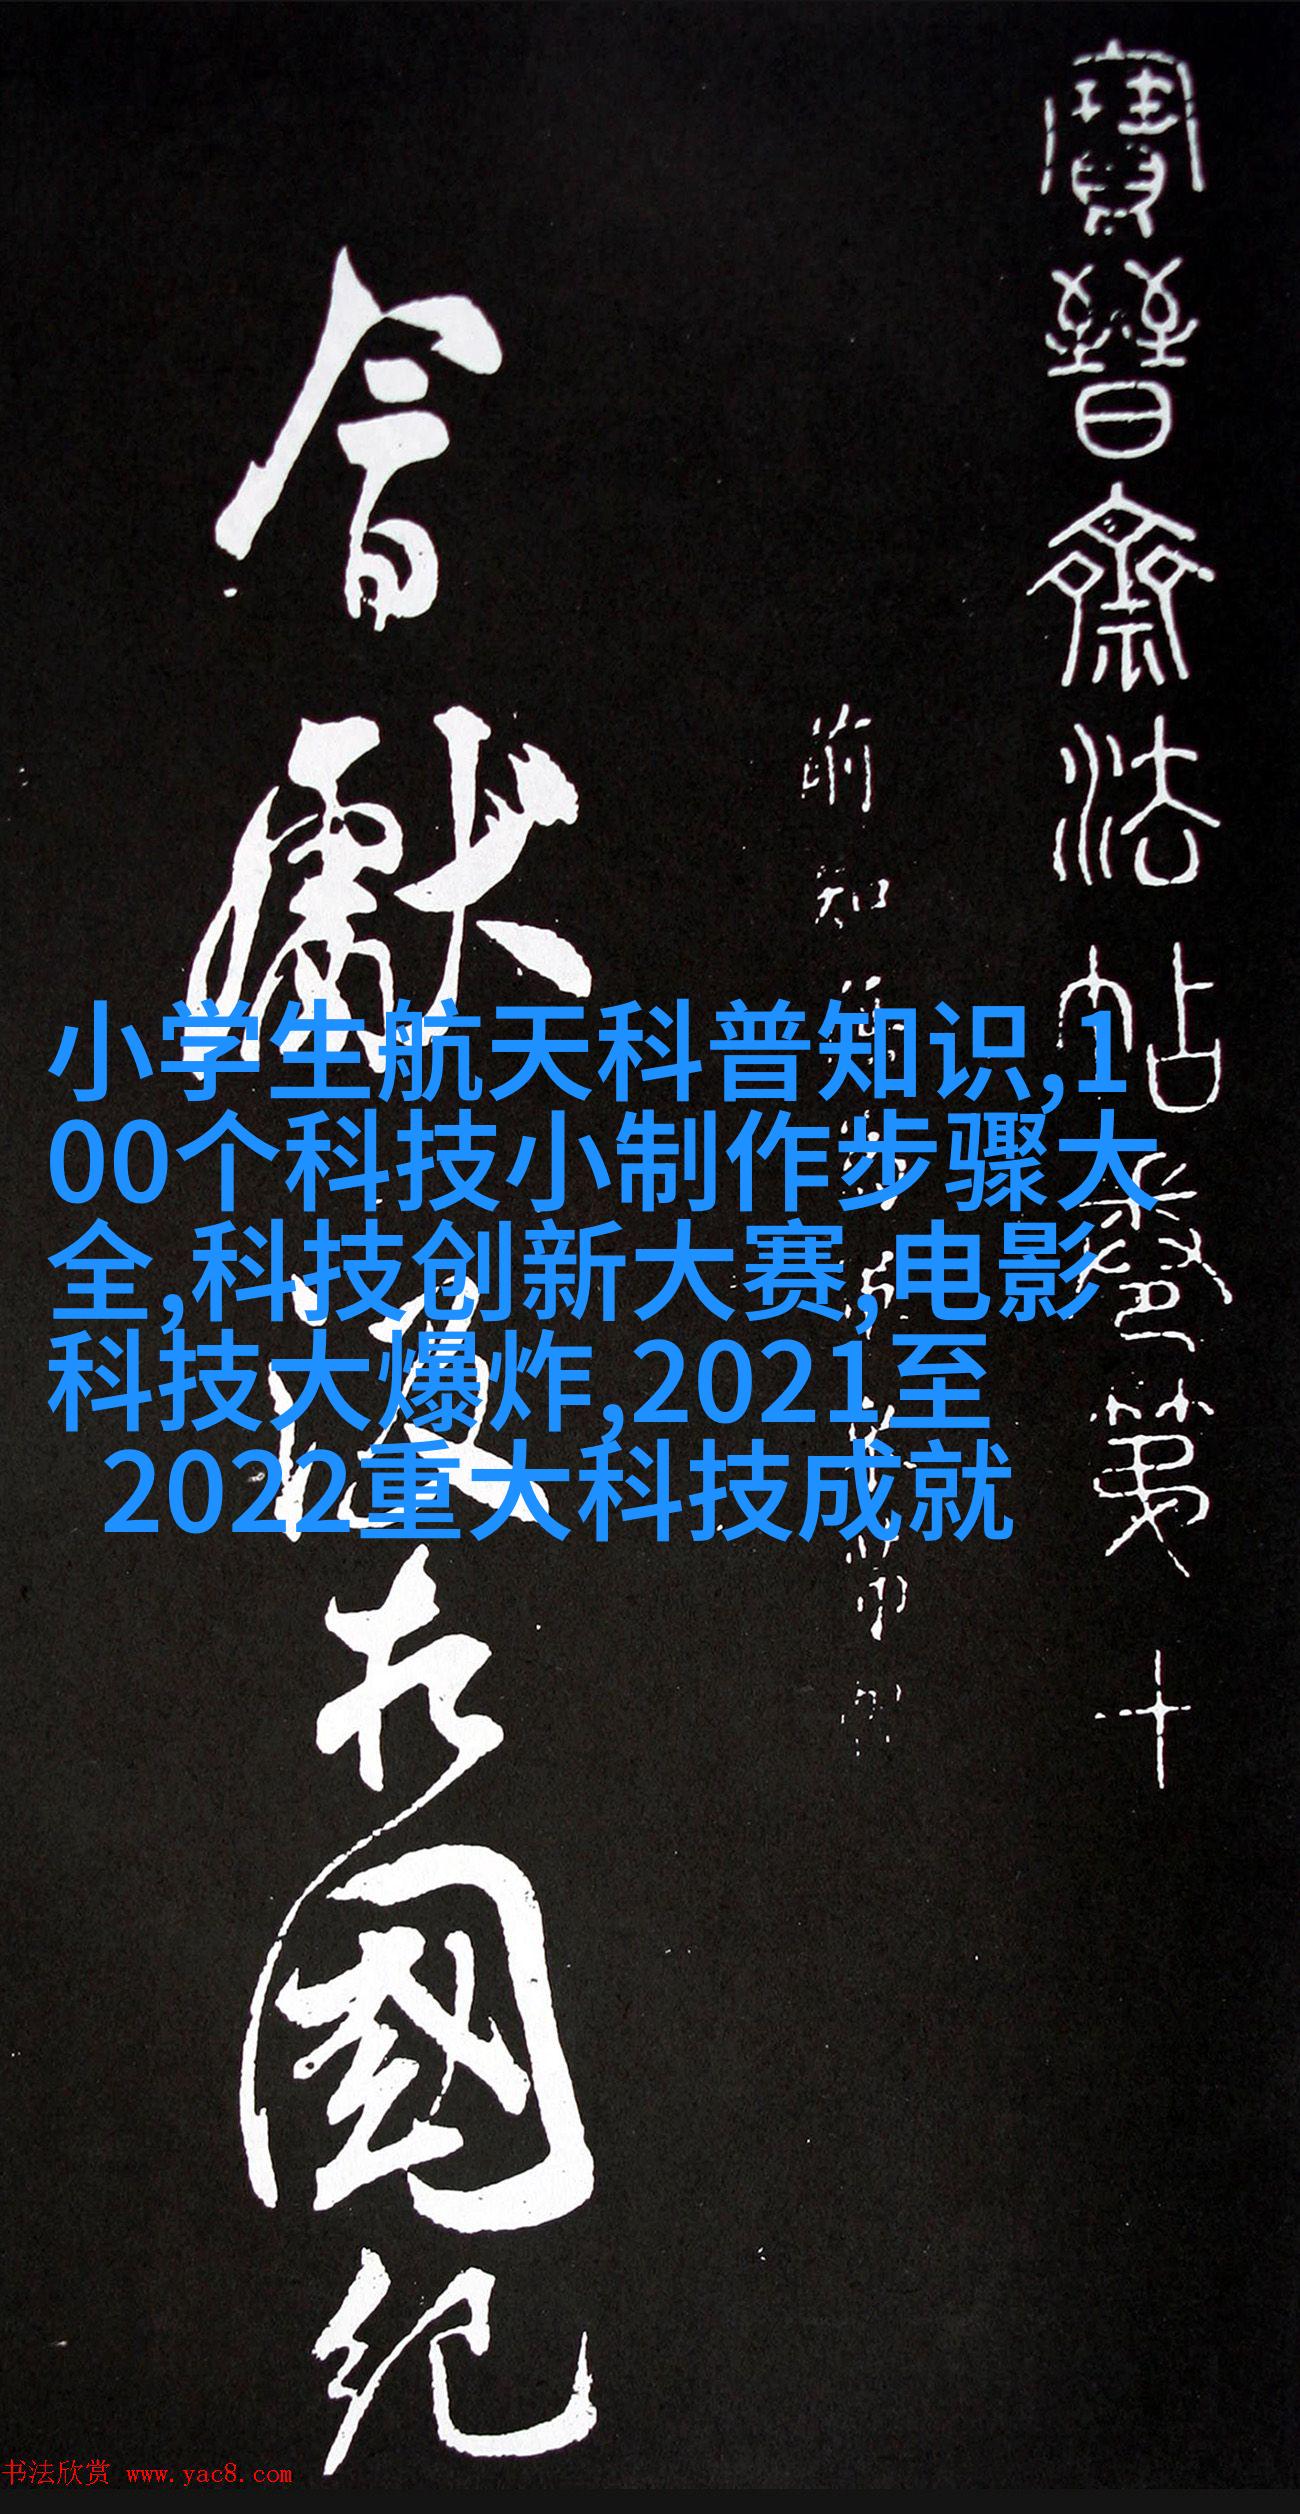 寶晉齋法帖卷第十
會獻汲古國紀
小学生航天科普知识,1
00个科技小制作步骤大
全,科技创新大赛,电影
科技大爆炸,2021至
2022重大科技成就
书法欣赏 www.yac8.com